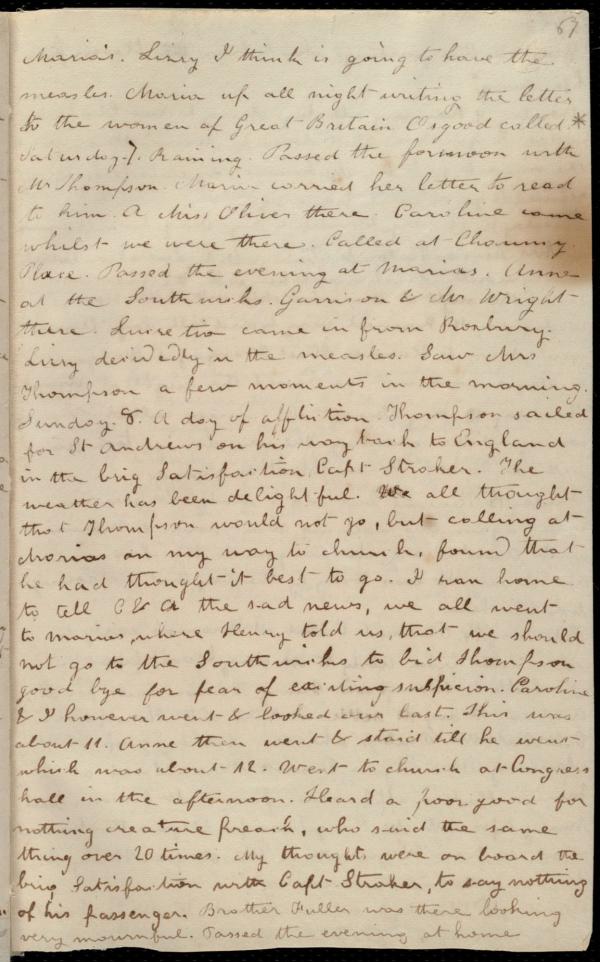 67
Maria's. Lizzy I think is going to have the
measles. Maria up all night writing the letter
to the women of Great Britain Osgood called *
Saturday 7. Raining. Passed the forenoon with
Mr Thompson. Maria carried her letter to read
to him. A Miss Oliver there. Caroline came
whilst we were there. Called at Chauncy
Place. Passed the evening at Marias. Anne
at the Southwicks. Garrison & Mr Wright
there. Lucretia came in from Roxbury.
Lizzy decidedly in the measles. Saw Mrs
Thompson a few moments in the morning.
Sunday 8. A day of affliction. Thompson sailed
for St Andrews on his way back to England
in the brig Satisfaction Capt Stroker. The
weather has been delightful. We all thought
that Thompson would not go, but calling at
Marias on my way to church, found that
he had thought it best to go. I ran home
to tell C & A the sad news, we all went
to marias, where Henry told us, that we should
not go to the Southwicks to bid Thompson
good bye for fear of exciting suspicion. Caroline
& I however went & looked our last. This was
about 11. Anne then went & staid till he went
which was about 12. Went to church at Congress
hall in the afternoon. Heard a poor good for
nothing creature preach, who said the same
thing over 20 times. My thoughts were on board the
brig Satisfaction with Capt Stroker, to say nothing
of his passenger. Brother Fuller was there looking
very mournful. Passed the evening at home